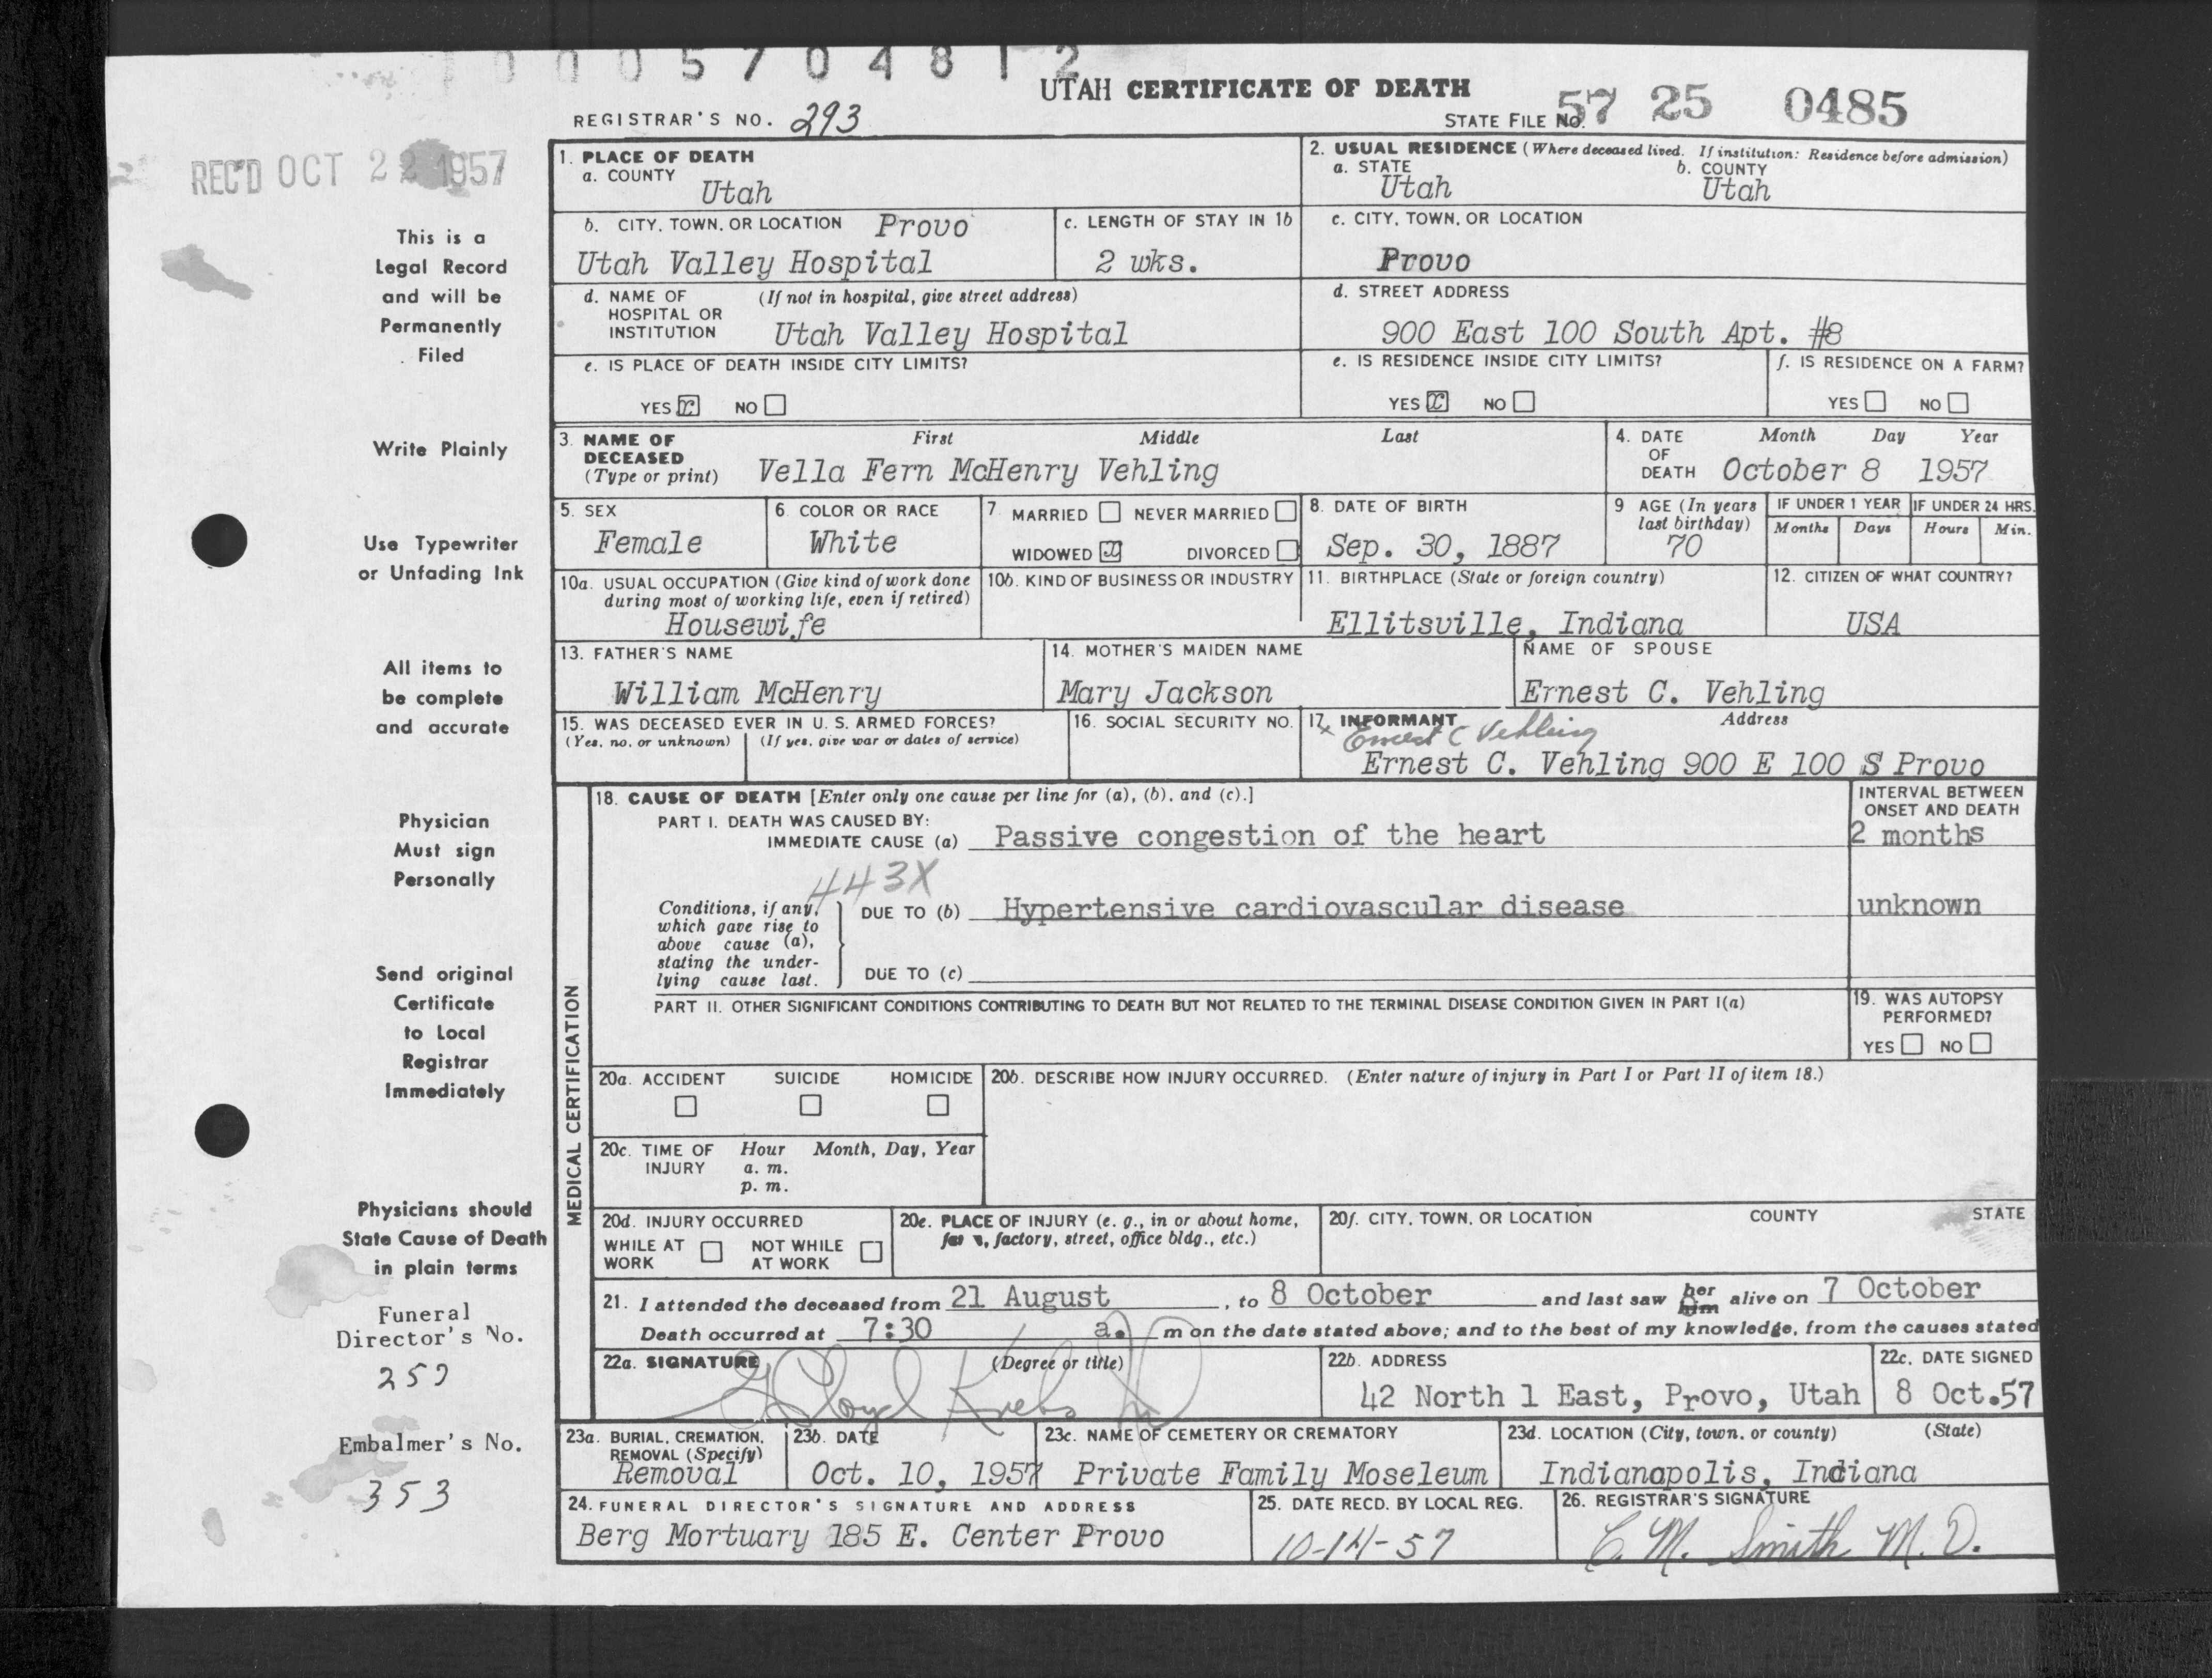 0 0 0 5 7 0 4 8 1 2
UTAH CERTIFICATE OF DEATH
REGISTRAR'S NO. 293
STATE FILE NO. 57 25 0485
REC'D OCT 22 1957
This is a
Legal Record
and will be
Permanently
Filed
Write Plainly
Use Typewriter
or Unfading Ink
All items to
be complete
and accurate
Physician
Must sign
Personally
Send original
Certificate
to Local
Registrar
Immediately
Physicians should
State Cause of Death
in plain terms
Funeral
Director's No.
Embalmer's No.
353
1. PLACE OF DEATH
a. COUNTY
Utah
2. USUAL RESIDENCE (Where deceased lived. If institution: Residence before admission)
a. STATE b. COUNTY
Utah Utah
b. CITY, TOWN, OR LOCATION Provo
Utah Valley Hospital
c. LENGTH OF STAY IN 1b
2 wks.
c. CITY, TOWN, OR LOCATION
Provo
d. NAME OF (If not in hospital, give street address)
HOSPITAL OR
INSTITUTION Utah Valley Hospital
d. STREET ADDRESS
900 East 100 South Apt. #8
e. IS PLACE OF DEATH INSIDE CITY LIMITS?
YES x NO
e. IS RESIDENCE INSIDE CITY LIMITS?
YES x NO
f. IS RESIDENCE ON A FARM?
YES NO
3. NAME OF DECEASED (Type or print)
First Middle Last
Vella Fern McHenry Vehling
4. DATE OF DEATH
Month Day Year
October 8 1957
5. SEX
Female
6. COLOR OR RACE
White
7. MARRIED NEVER MARRIED
WIDOWED x DIVORCED
8. DATE OF BIRTH
Sep. 30, 1887
9 AGE (In years last birthday)
70
IF UNDER 1 YEAR IF UNDER 24 HRS.
Months Days Hours Min.
10a. USUAL OCCUPATION (Give kind of work done
during most of working life, even if retired)
Housewife
10b. KIND OF BUSINESS OR INDUSTRY
11. BIRTHPLACE (State or foreign country)
Ellitsville, Indiana
12. CITIZEN OF WHAT COUNTRY?
USA
13. FATHER'S NAME
William McHenry
14. MOTHER'S MAIDEN NAME
Mary Jackson
NAME OF SPOUSE
Ernest C. Vehling
15. WAS DECEASED EVER IN U. S. ARMED FORCES?
(Yes, no, or unknown) (If yes, give war or dates of service)
16. SOCIAL SECURITY NO.
17. INFORMANT Address
x Ernest C Vehling
Ernest C. Vehling 900 E 100 S Provo
MEDICAL CERTIFICATION
18. CAUSE OF DEATH [Enter only one cause per line for (a), (b), and (c).]
INTERVAL BETWEEN
ONSET AND DEATH
PART I. DEATH WAS CAUSED BY:
IMMEDIATE CAUSE (a) Passive congestion of the heart 2 months
443X
Conditions, if any,
which gave rise to
above cause (a),
stating the under-
lying cause last.
DUE TO (b) Hypertensive cardiovascular disease unknown
DUE TO (c)
PART II. OTHER SIGNIFICANT CONDITIONS CONTRIBUTING TO DEATH BUT NOT RELATED TO THE TERMINAL DISEASE CONDITION GIVEN IN PART I(a)
19. WAS AUTOPSY
PERFORMED?
YES NO
20a. ACCIDENT SUICIDE HOMICIDE
20b. DESCRIBE HOW INJURY OCCURRED. (Enter nature of injury in Part I or Part II of item 18.)
20c. TIME OF INJURY
Hour Month, Day, Year
a. m.
p. m.
20d. INJURY OCCURRED
WHILE AT WORK NOT WHILE AT WORK
20e. PLACE OF INJURY (e. g., in or about home,
factory, street, office bldg., etc.)
20f. CITY, TOWN, OR LOCATION COUNTY STATE
21. I attended the deceased from 21 August, to 8 October and last saw her him alive on 7 October
Death occurred at 7:30 a. m on the date stated above; and to the best of my knowledge, from the causes stated
22a. SIGNATURE (Degree or title)
Lloyd Krebs
22b. ADDRESS
42 North 1 East, Provo, Utah
22c. DATE SIGNED
8 Oct.57
23a. BURIAL, CREMATION,
REMOVAL (Specify)
Removal
23b. DATE
Oct. 10, 1957
23c. NAME OF CEMETERY OR CREMATORY
Private Family Moseleum
23d. LOCATION (City, town, or county) (State)
Indianapolis, Indiana
24. FUNERAL DIRECTOR'S SIGNATURE AND ADDRESS
Berg Mortuary 185 E. Center Provo
25. DATE RECD. BY LOCAL REG.
10-14-57
26. REGISTRAR'S SIGNATURE
C. M. Smith M. D.